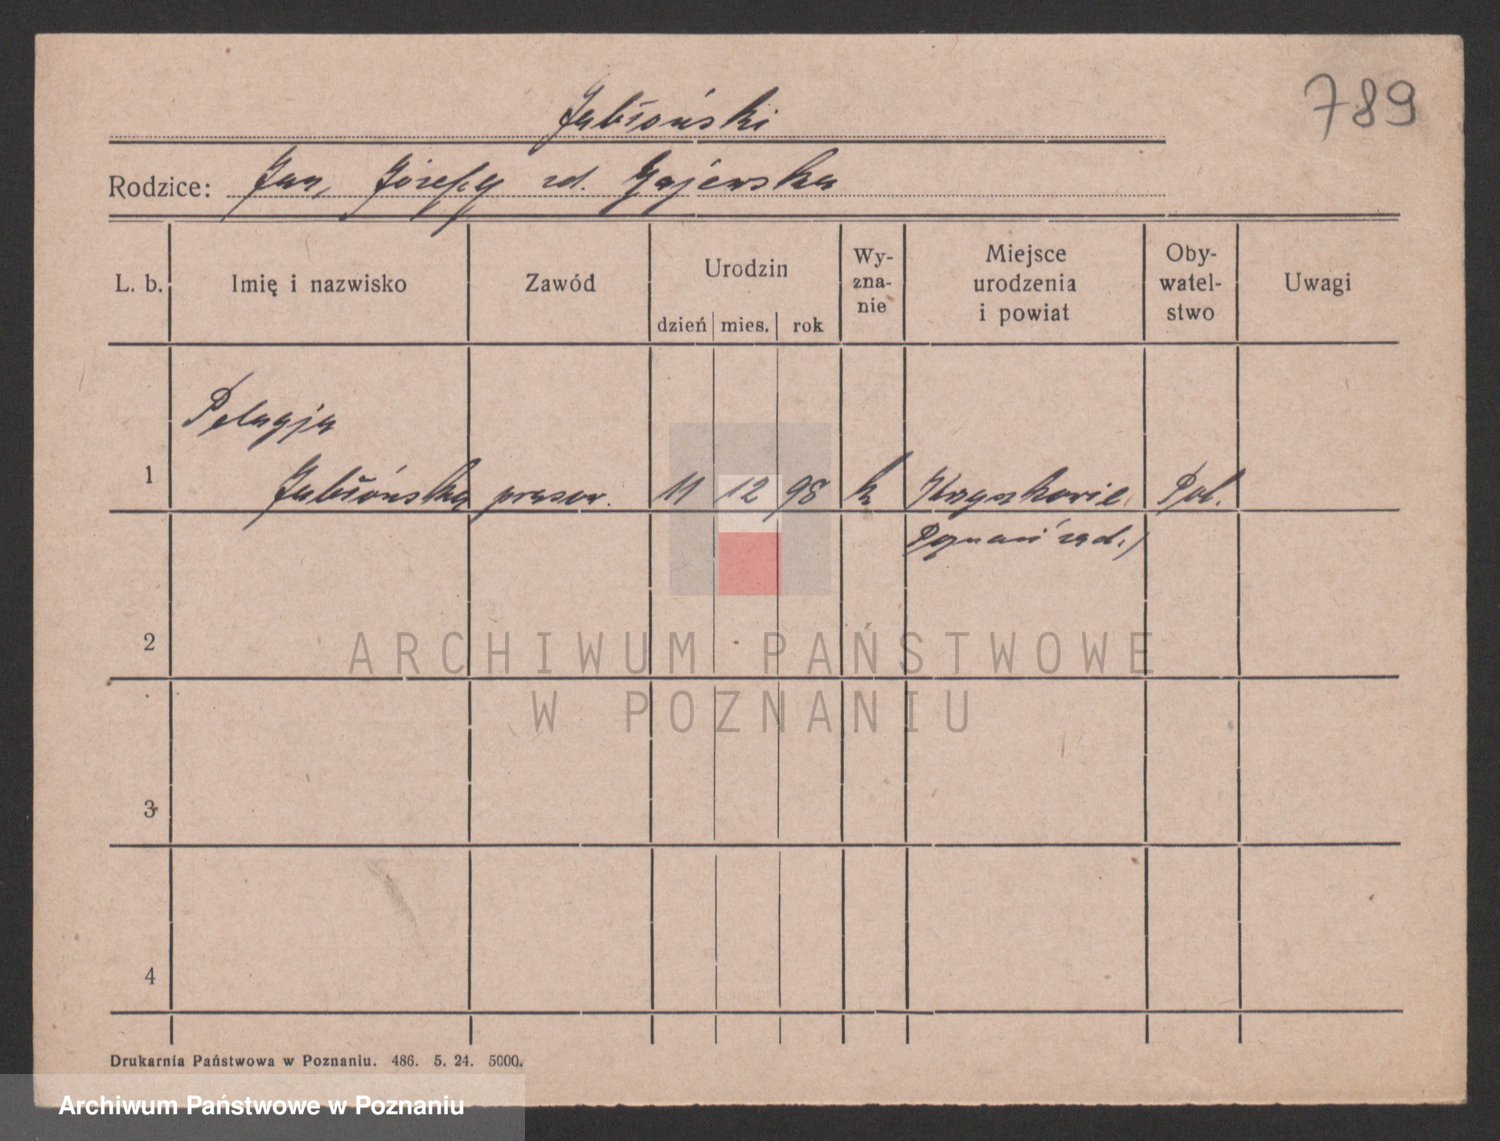 789
Jabłoński
Rodzice: Jan, Józefy zd. Gajewska
L. b. Imię i nazwisko Zawód Urodzin dzień mies. rok Wy-zna-nie Miejsce urodzenia i powiat Oby-watel-stwo Uwagi
Pelagja
1 Jabłońska prasow. 11 12 98 k Krzyszkowie Pol.
Poznań
2
ARCHIWUM PAŃSTWOWE
W POZNANIU
3
4
Drukarnia Państwowa w Poznaniu. 486. 5. 24. 5000.
Archiwum Państwowe w Poznaniu